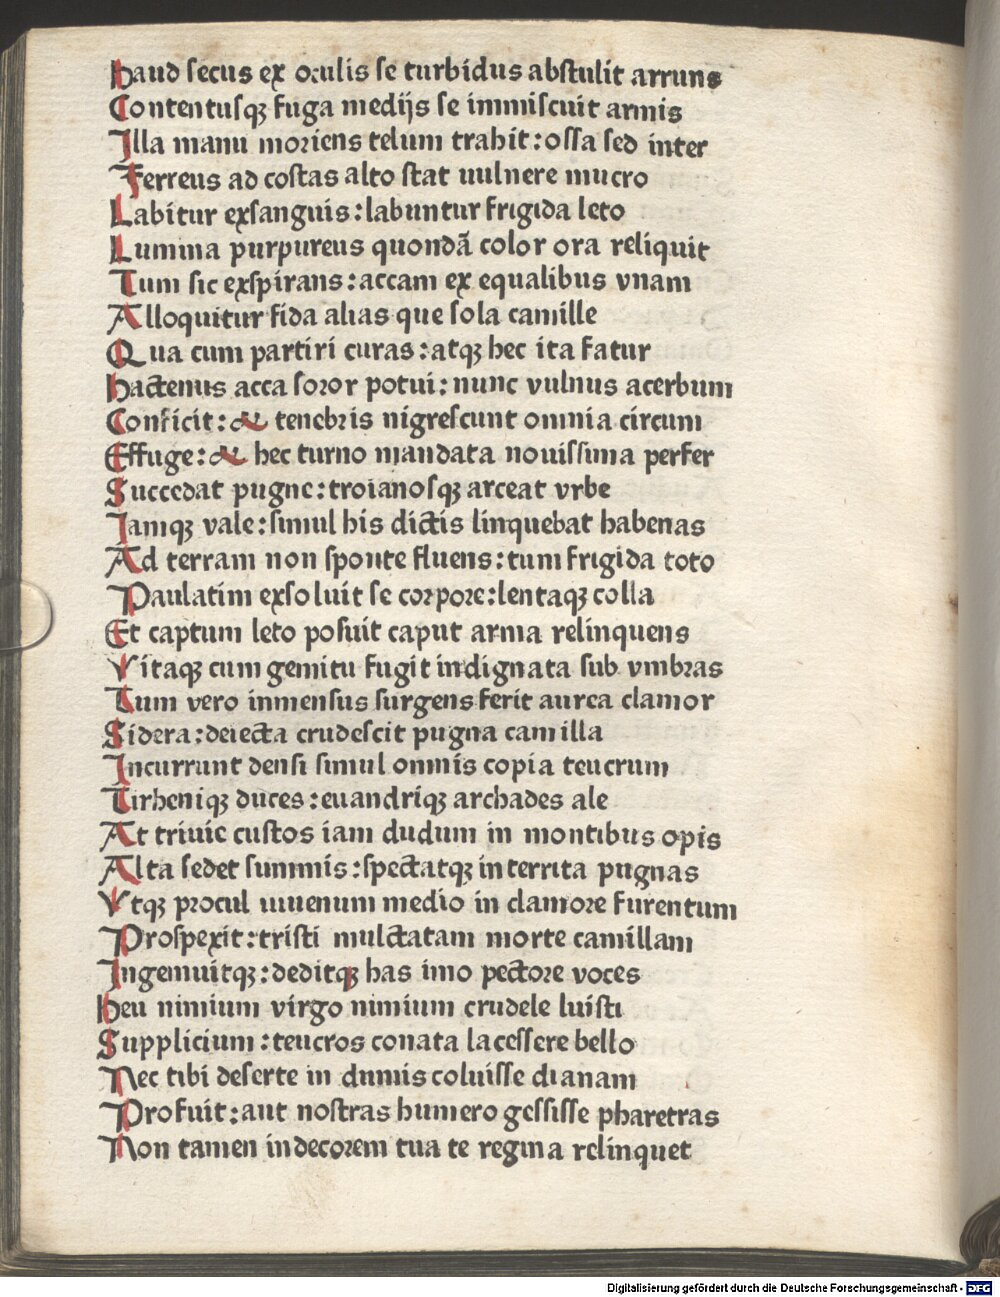 Haud secus ex oculis se turbidus abstulit arruns
Contentusqꝫ fuga medijs se immiscuit armis
Illa manu moriens telum trahit: ossa sed inter
Ferreus ad costas alto stat uulnere mucro
Labitur exsanguis: labuntur frigida leto
Lumina purpureus quondã color ora reliquit
Tum sic exspirans: accam ex equalibus vnam
Alloquitur fida alias que sola camille
Qua cum partiri curas: atqꝫ hec ita fatur
Hactenus acca soror potui: nunc vulnus acerbum
Conficit: & tenebris nigrescunt omnia circum
Effuge: & hec turno mandata nouissima perfer
Succedat pugne: troianosqꝫ arceat vrbe
Iamqꝫ vale: simul his dictis linquebat habenas
Ad terram non sponte fluens: tum frigida toto
Paulatim exsoluit se corpore: lentaqꝫ colla
Et captum leto posuit caput arma relinquens
Vitaqꝫ cum gemitu fugit indignata sub vmbras
Tum vero inmensus surgens ferit aurea clamor
Sidera: deiecta crudescit pugna camilla
Incurrunt densi simul omnis copia teucrum
Tirheniqꝫ duces: euandriqꝫ archades ale
At triuie custos iam dudum in montibus opis
Alta sedet summis: spectatqꝫ interrita pugnas
Vtqꝫ procul iuuenum medio in clamore furentum
Prospexit: tristi mulctatam morte camillam
Ingemuitqꝫ: deditqꝫ has imo pectore voces
Heu nimium virgo nimium crudele luisti
Supplicium: teucros conata lacessere bello
Nec tibi deserte in dumis coluisse dianam
Profuit: aut nostras humero gessisse pharetras
Non tamen indecorem tua te regina relinquet
Digitalisierung gefördert durch die Deutsche Forschungsgemeinschaft - DFG